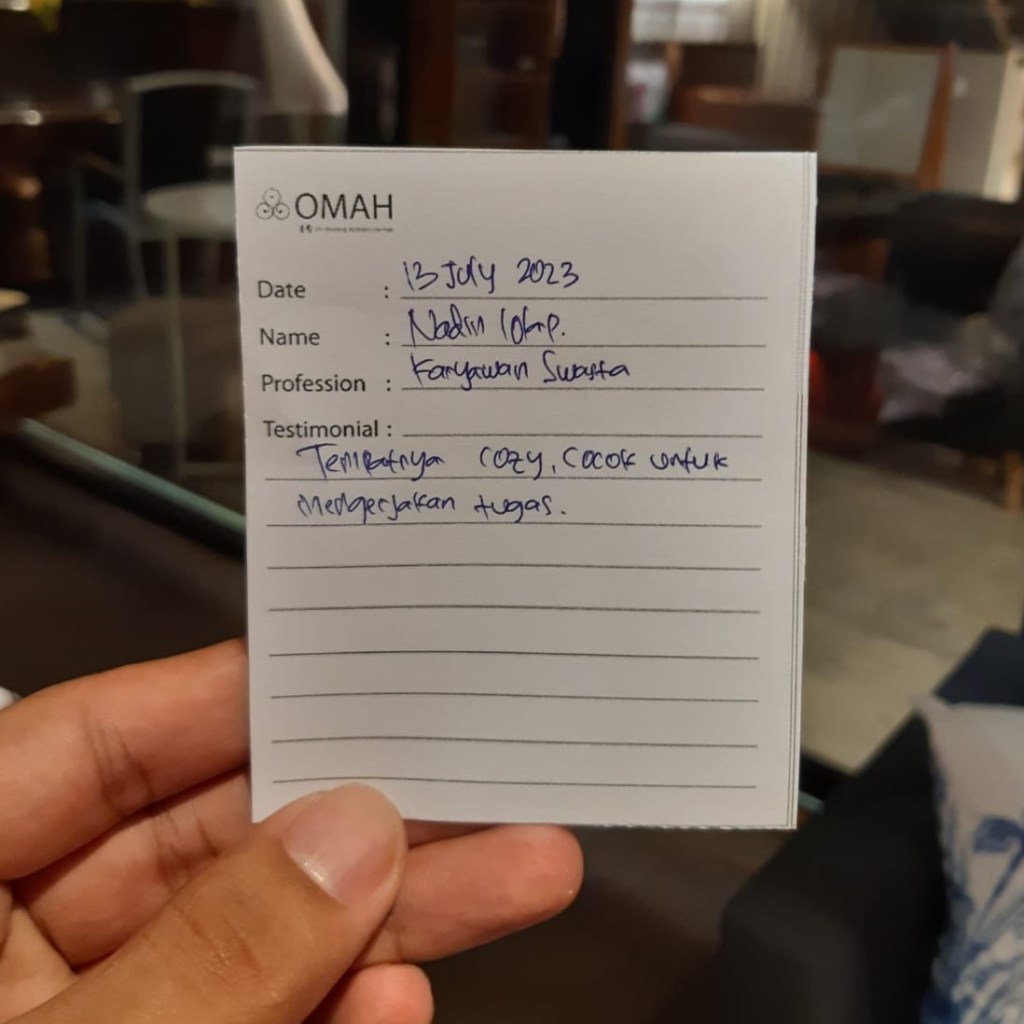 OMAH
Date : 13 July 2023
Name : Nadin
Profession : Karyawan Swasta
Testimonial :
Tempatnya cozy, cocok untuk
mengerjakan tugas.